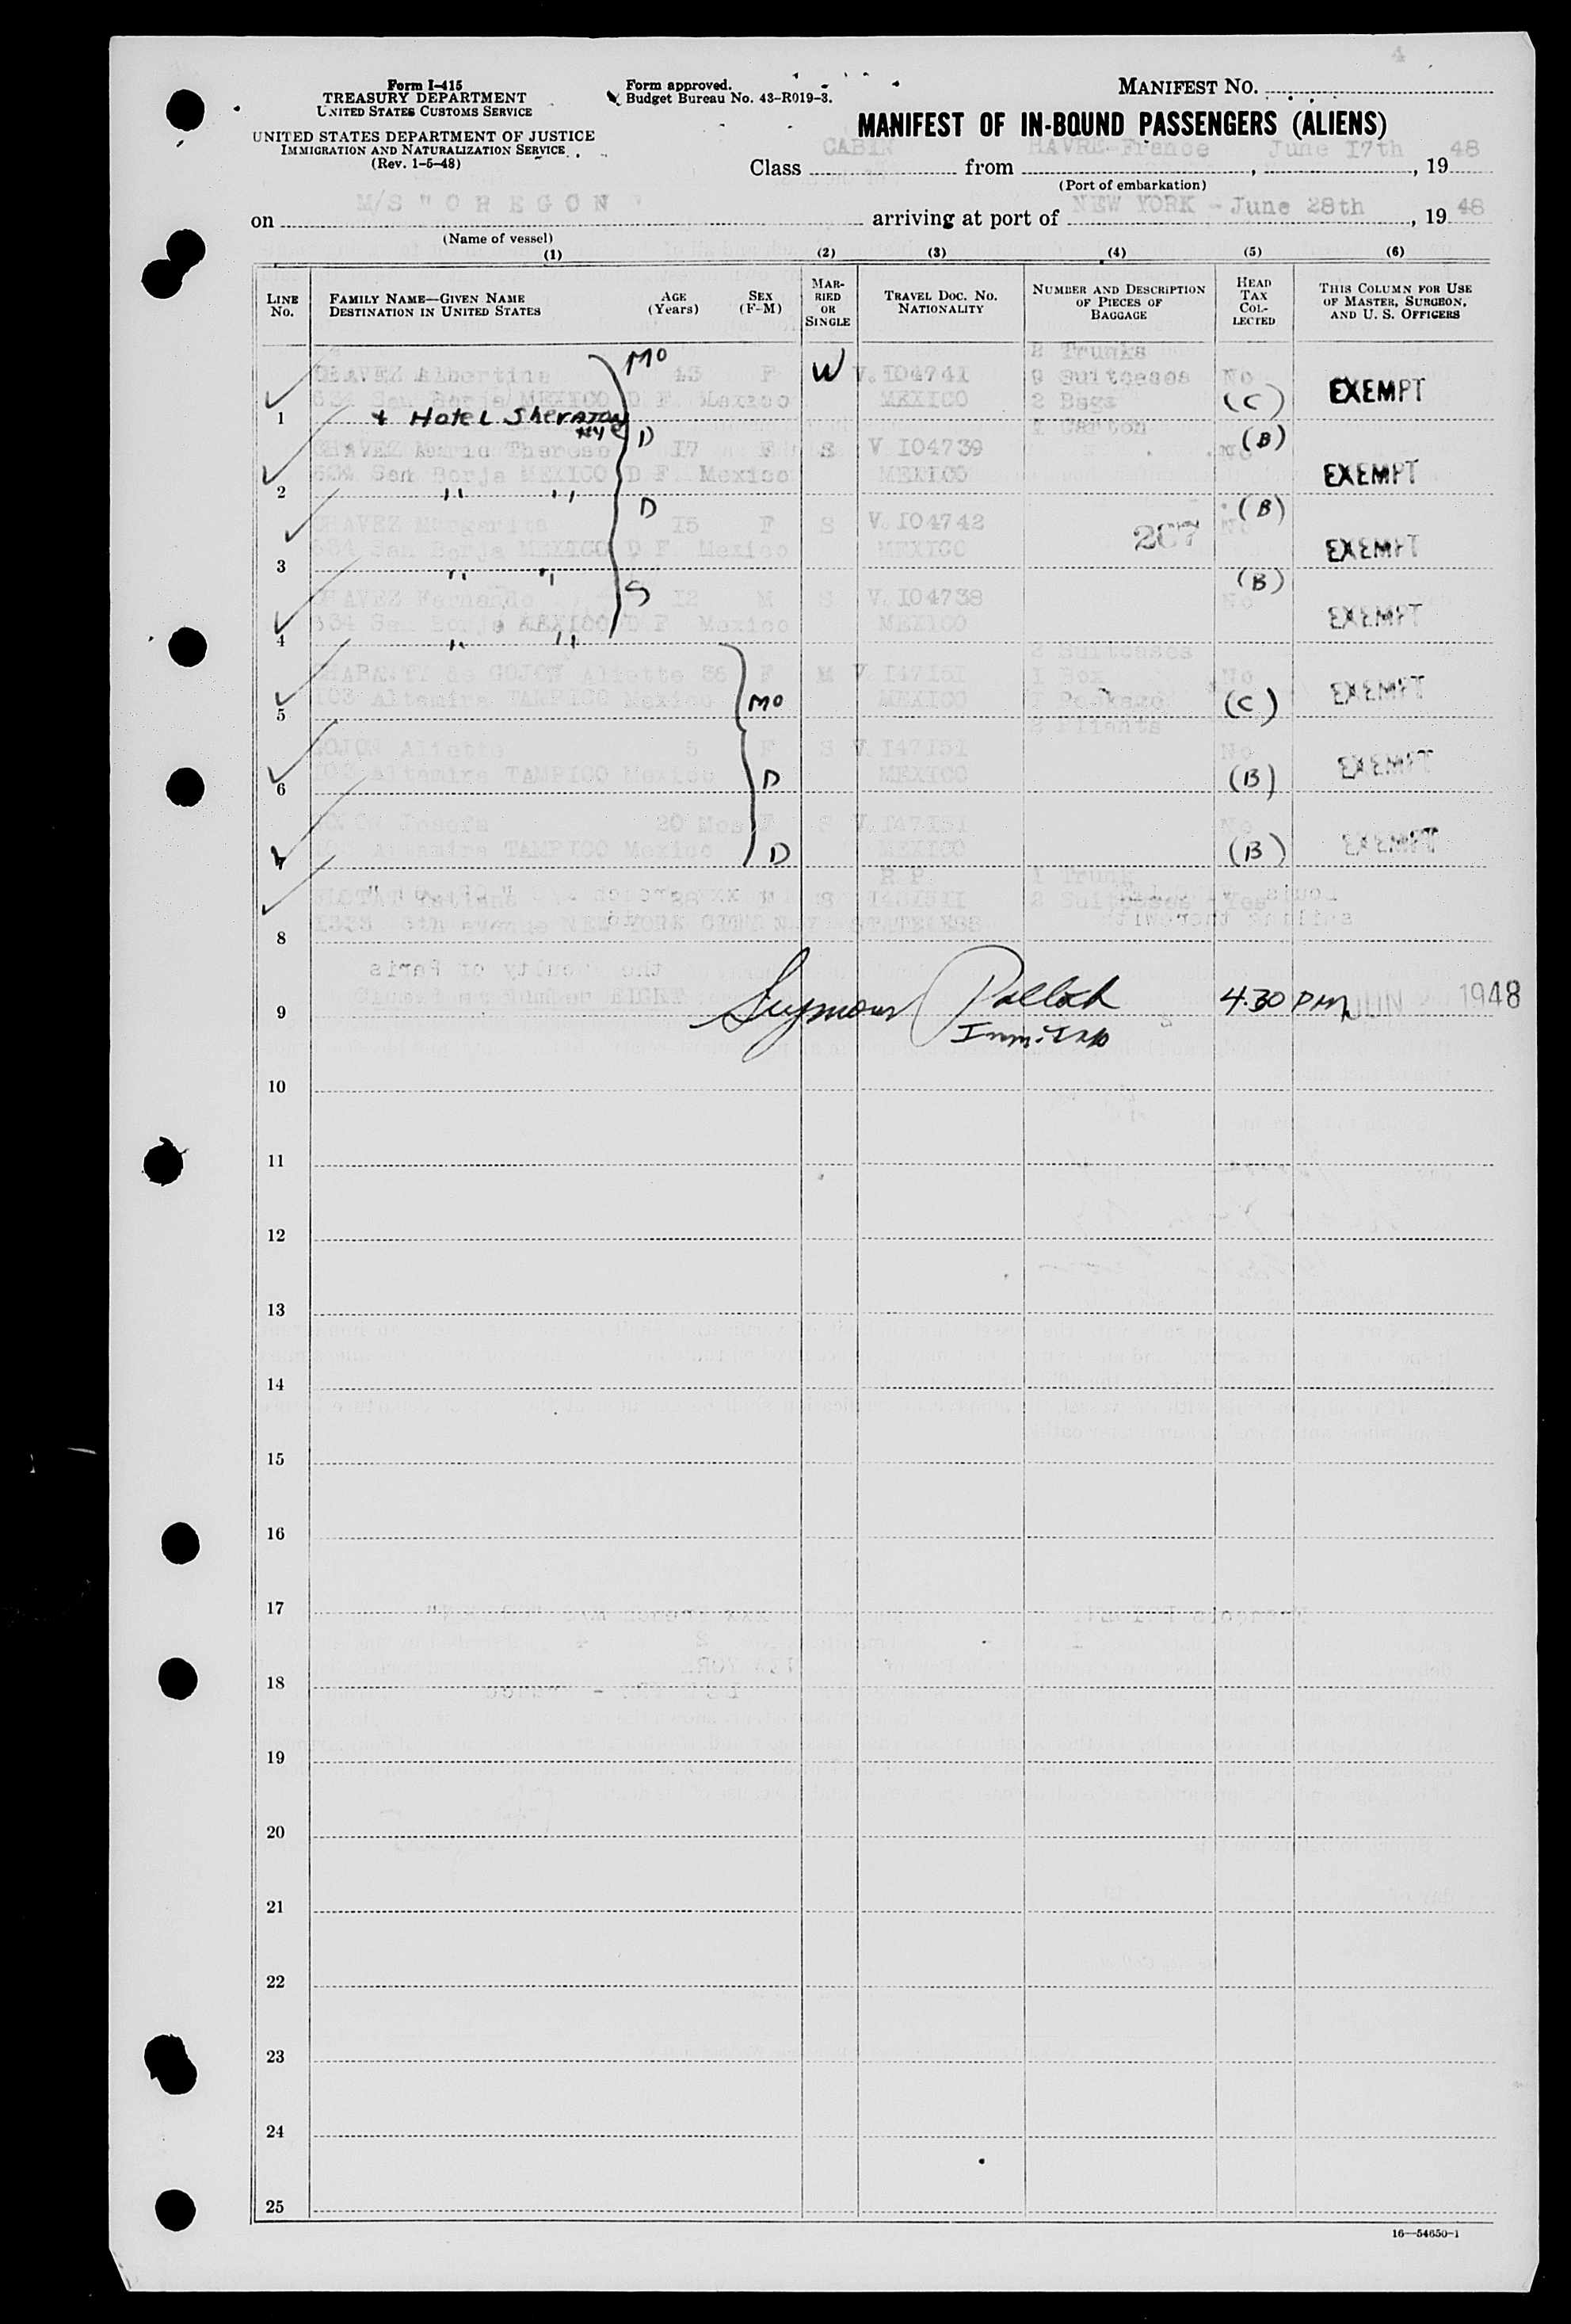 4
Form I-415
TREASURY DEPARTMENT
UNITED STATES CUSTOMS SERVICE
UNITED STATES DEPARTMENT OF JUSTICE
IMMIGRATION AND NATURALIZATION SERVICE
(Rev. 1-5-48)
Form approved.
Budget Bureau No. 43-R019-3.
MANIFEST NO.
MANIFEST OF IN-BOUND PASSENGERS (ALIENS)
Class CABIN from HAVRE-France, June 17th, 19 48
(Port of embarkation)
on M/S "OREGON" arriving at port of NEW YORK - June 28th, 19 48
(Name of vessel)
(1) (2) (3) (4) (5) (6)
LINE No.
FAMILY NAME—GIVEN NAME DESTINATION IN UNITED STATES
AGE (Years)
SEX (F-M)
MARRIED OR SINGLE
TRAVEL DOC. No. NATIONALITY
NUMBER AND DESCRIPTION OF PIECES OF BAGGAGE
HEAD TAX COLLECTED
THIS COLUMN FOR USE OF MASTER, SURGEON, AND U. S. OFFICERS
Mo 2 Trunks
CHAVEZ Albertina 43 F W V. 104741 9 Suitcases No EXEMPT
634 San Borja MEXICO D F Mexico MEXICO 2 Bags (C)
1 + Hotel Sheraton NYC 1 Carton
CHAVEZ Theresе 17 F S V 104739 No (B)
D
634 San Borja MEXICO D F Mexico MEXICO EXEMPT
2 " "
CHAVEZ Margarita 15 F S V. 104742 No (B)
D
634 San Borja MEXICO D F Mexico MEXICO 267 EXEMPT
3 " "
CHAVEZ Fernando 12 M S V. 104738 No (B)
S
634 San Borja MEXICO D F Mexico MEXICO EXEMPT
4 " "
2 Suitcases
de GOJON Aliette 36 F M V. 147151 1 Box No
103 Altamira TAMPICO Mexico Mo MEXICO 1 Package (C) EXEMPT
5
2 Pliants
GOJON Aliette 5 F S V. 147151 No
103 Altamira TAMPICO Mexico D MEXICO (B) EXEMPT
6
GOJON Josefa 20 Mos F S V. 147151 No
103 Altamira TAMPICO Mexico D MEXICO (B) EXEMPT
7
R.P. 1 Trunk
Tatiana 38 S 2 Suitcases Yes
5th avenue NEW-YORK CITY N.Y. STATELESS
8
Seymour Pollock 4:30 PM JUN 1948
9
Imm. Insp
10
11
12
13
14
15
16
17
18
19
20
21
22
23
24
25
16—54650-1